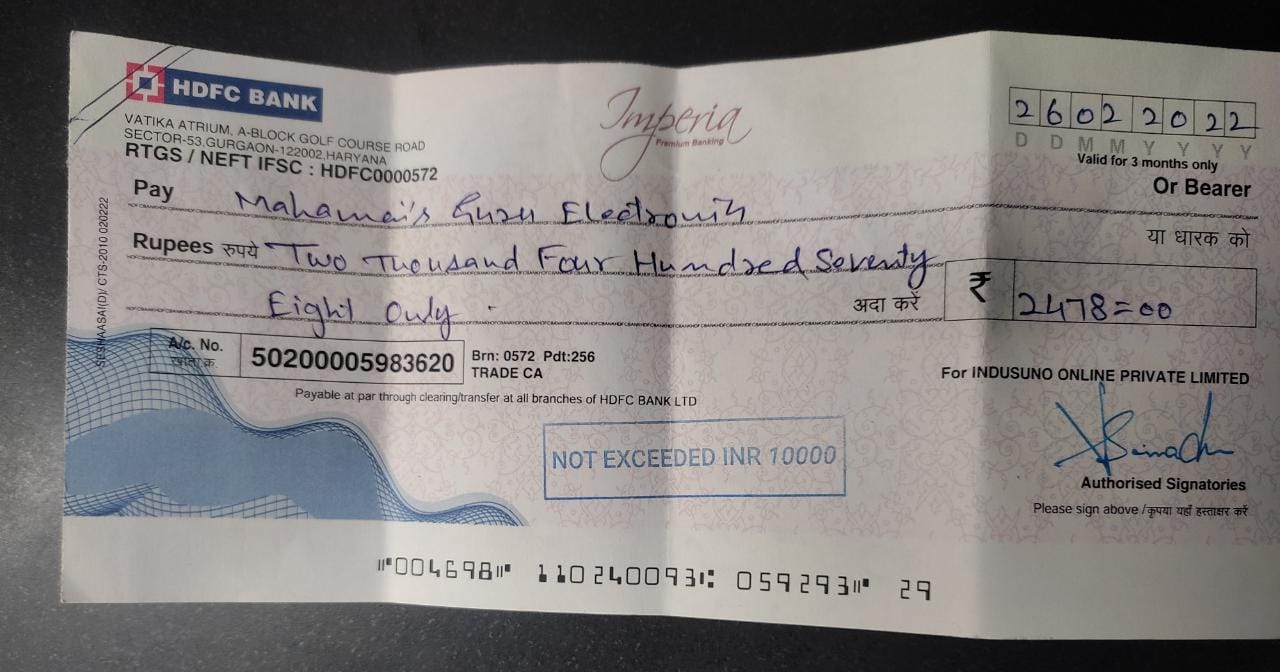 HDFC BANK
VATIKA ATRIUM, A-BLOCK GOLF COURSE ROAD
SECTOR-53,GURGAON-122002,HARYANA
RTGS / NEFT IFSC : HDFC0000572
Imperia
Premium Banking
26022022
D D M M Y Y Y Y
Valid for 3 months only
Pay Mahamai's Guru Electronix Or Bearer
या धारक को
Rupees रुपये Two Thousand Four Hundred Seventy
Eight Only अदा करें ₹ 2478=00
SESHAASAI(D)/ CTS-2010 020222
A/c. No.
खाता क्र. 50200005983620
Brn: 0572 Pdt:256
TRADE CA
For INDUSUNO ONLINE PRIVATE LIMITED
Payable at par through clearing/transfer at all branches of HDFC BANK LTD
NOT EXCEEDED INR 10000
Authorised Signatories
Please sign above /कृपया यहाँ हस्ताक्षर करें
⑈004698⑈ 110240093⑆ 059293⑈ 29